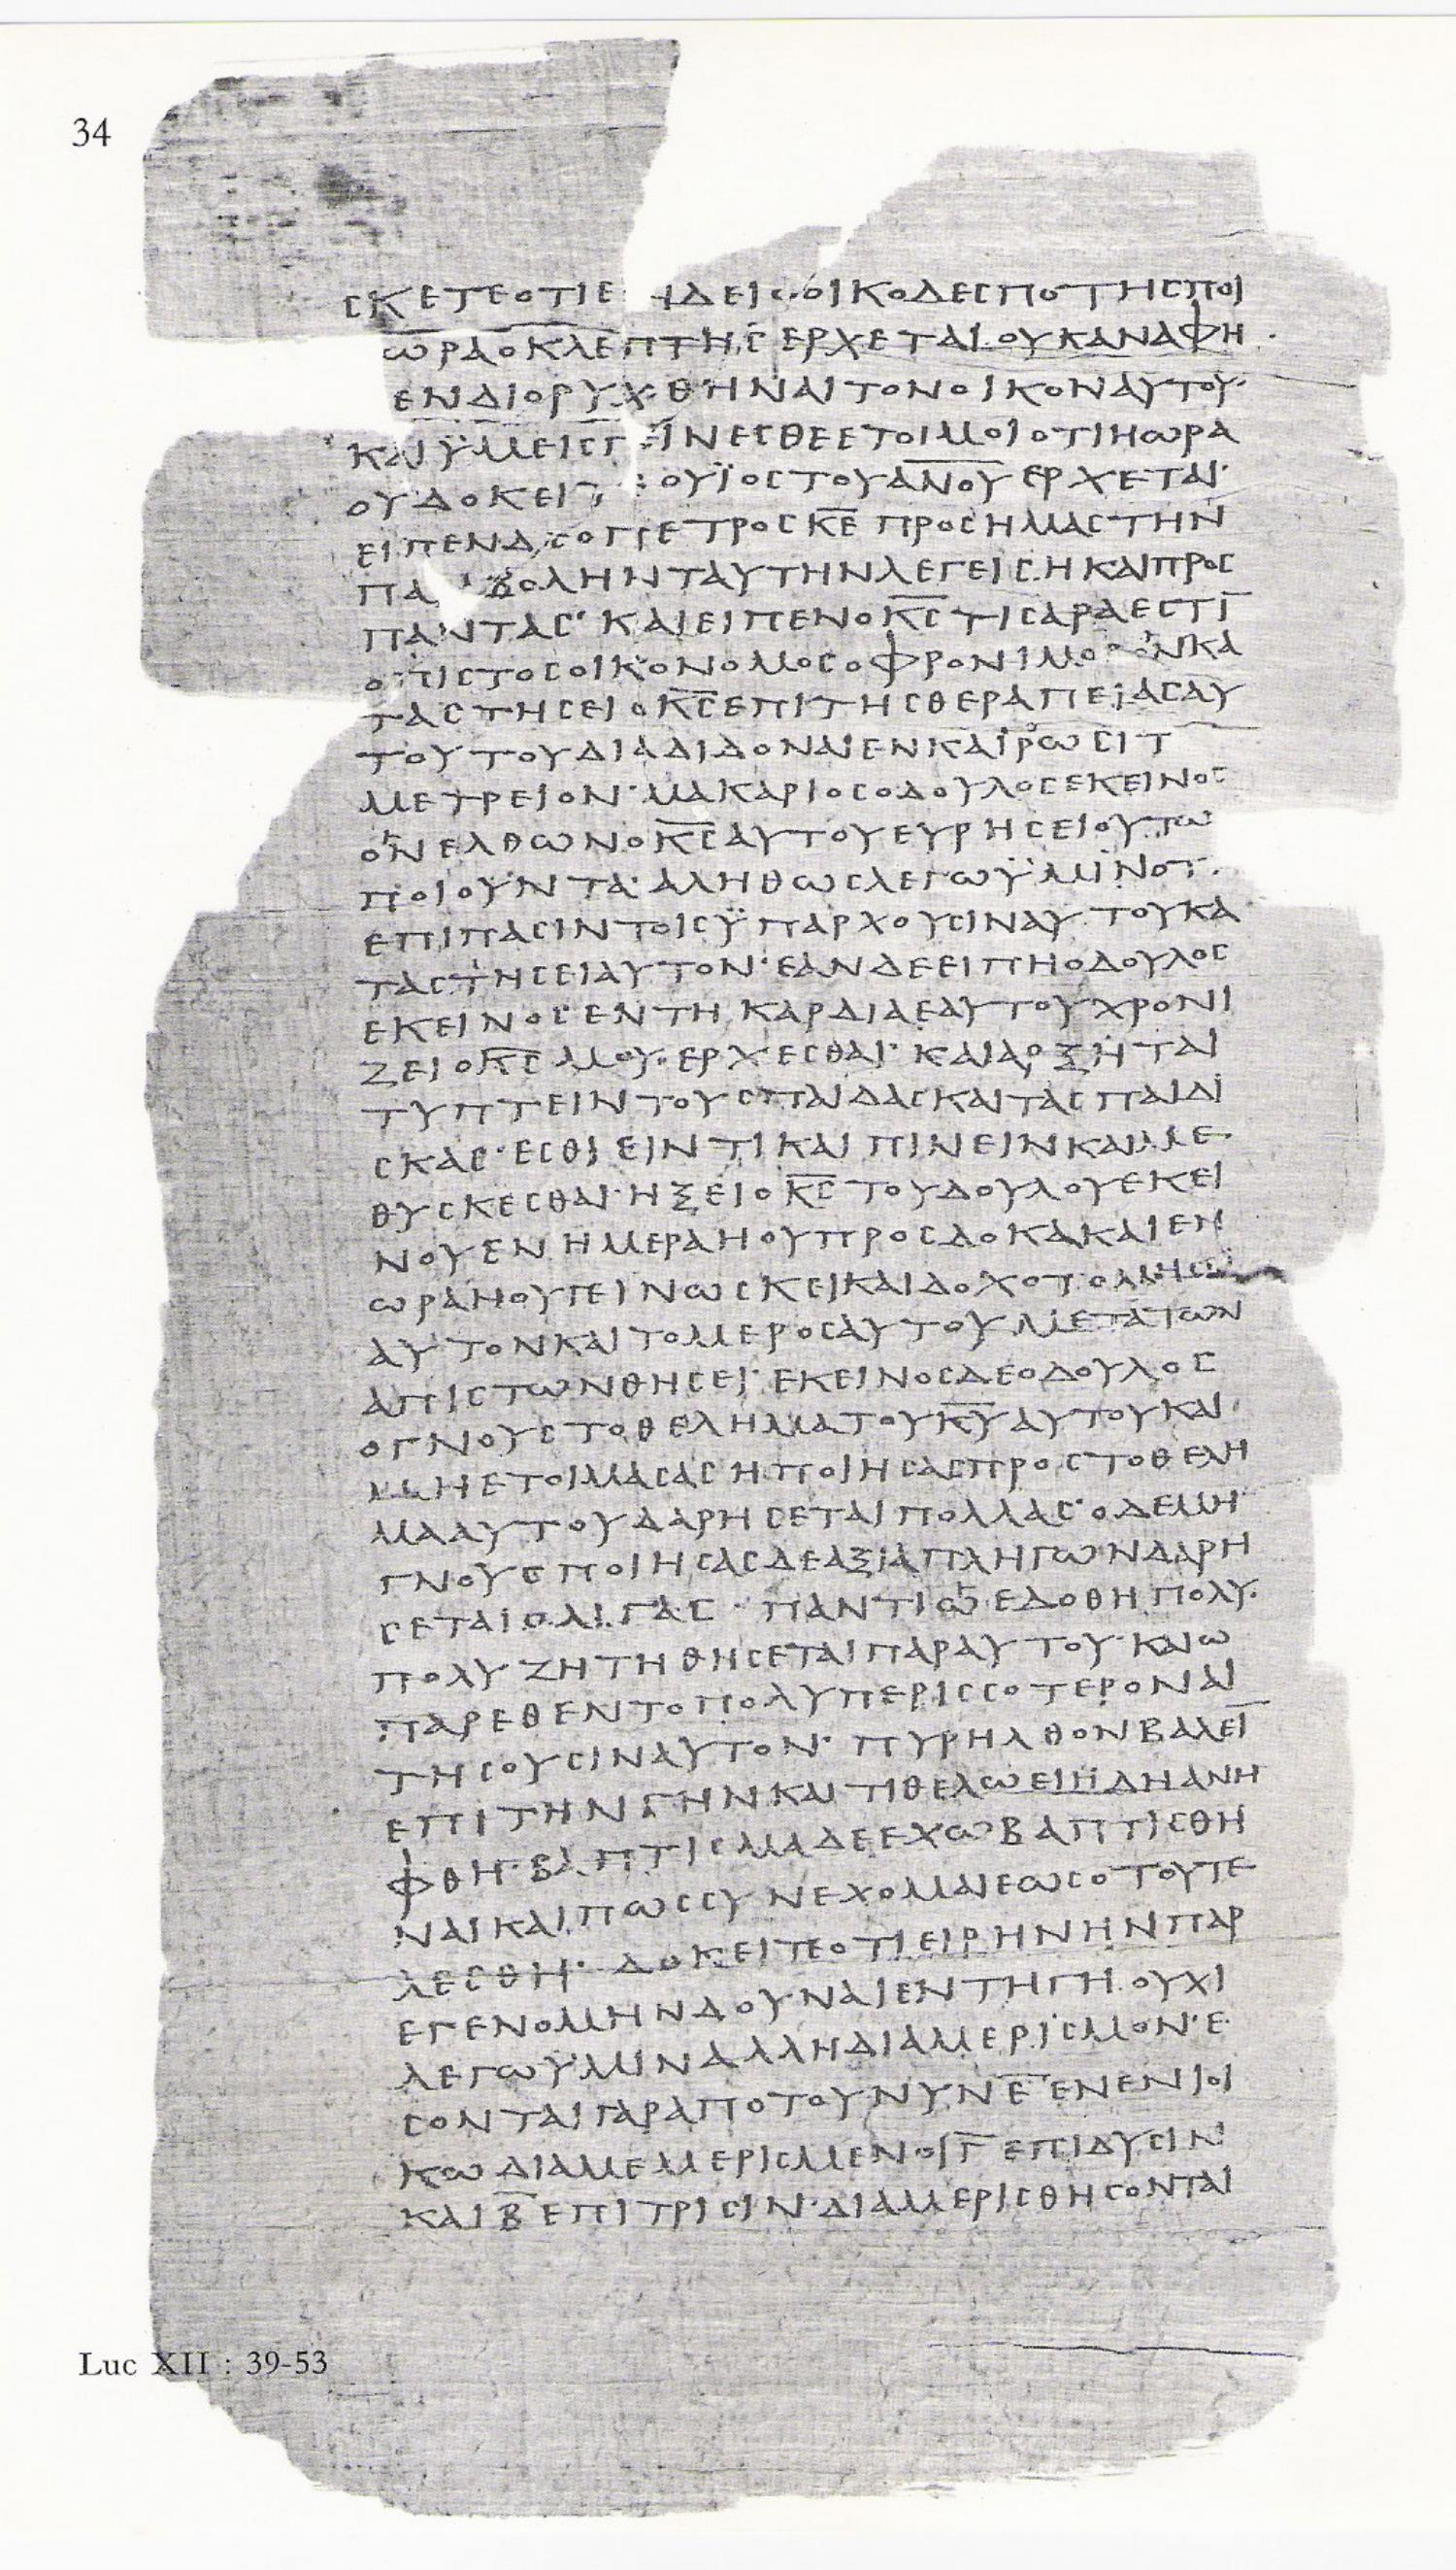 34
ϲκετεοτιε ηδειοοικοδεϲποτηϲποι
ωραοκλεπτηϲερχεταιουκαναφη
ενδιορυχθηναιτονοικοναυτου·
καιϋμειϲγεινεϲθεετοιμοιοτιηωρα
ουδοκει οϋιοϲτουα̅ν̅ο̅υ̅ερχεται·
ειπενδ οπετροϲκ̅ε̅ προϲημαϲτην
πα βοληνταυτηνλεγειϲηκαιπροϲ
πανταϲ· καιειπενοκ̅ϲ̅τιϲαραεϲτι̅
οπιϲτοϲοικονομοϲοφρονιμο ονκα
ταϲτηϲειοκ̅ϲ̅επιτηϲθεραπειαϲαυ
τουτουδιαδιδοναιενκαιρωϲιτ
μετρειον·μακαριοϲοδουλοϲεκεινοϲ
ονελθωνοκ̅ϲ̅αυτουευρηϲειουτω
ποιουντα·αληθωϲλεγωϋμινοτ
επιπαϲιντοιϲϋπαρχουϲιναυτουκα
ταϲτηϲειαυτον·εανδεειπηοδουλοϲ
εκεινοϲεντηκαρδιαεαυτουχρονι
ζειοκ̅ϲ̅μουερχεϲθαι·καιαρξηται
τυπτειντουϲπαιδαϲκαιταϲπαιδι
ϲκαϲ·εϲθιειντικαιπινεινκαιμε
θυϲκεϲθαι·ηξειοκ̅ϲ̅τουδουλουεκει
νουενημεραηουπροϲδοκακαιεν
ωραηουγεινωϲκεικαιδ
αυτονκαιτομεροϲαυτουμετατων
απιϲτωνθηϲει·εκεινοϲδεοδουλοϲ
ογνουϲτοθεληματουκ̅υ̅αυτουκαι
μηετοιμαϲαϲηποιηϲαϲπροϲτοθελη
μααυτουδαρηϲεταιπολλαϲ·οδεμη
γνουϲποιηϲαϲδεαξιαπληγωνδαρη
ϲεταιολιγαϲ· παντιωεδοθηπολυ·
πολυζητηθηϲεταιπαραυτου·καιω
παρεθεντοπολυπεριϲϲοτεροναι
τηϲουϲιναυτον· πυρηλθονβαλει̅
επιτηνγηνκαιτιθελωειηδηανη
φθη·βαπτιϲμαδεεχωβαπτιϲθη
ναικαιπωϲϲυνεχομαιεωϲοτουτε
λεϲθη· δοκειτεοτιειρηνηνπαρ
εγενομηνδουναιεντηγη·ουχι
λεγωϋμιναλληδιαμεριϲμον·ε
ϲονταιγαραποτουνυνε̅ενενιοι
κωδιαμεμεριϲμενοιγ̅επιδυϲιν
καιβ̅επιτριϲιν·διαμεριϲθηϲονται
Luc XII : 39-53